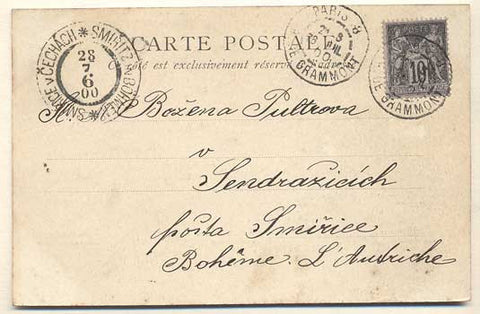 CARTE POSTALE
Ce côté est exclusivement réservé
SMIŘICE V ČECHÁCH * SMIŘITZ IN BÖHMEN *
28
7
6
00
PARIS
RUE GRAMMONT
10
RUE GRAMMONT
Božena Pultrova
v
Sendražicích
pošta Smiřice
Bohême. L'Autriche